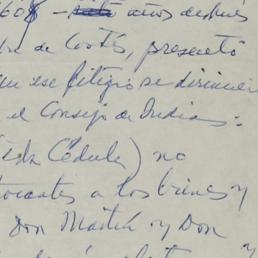 años después
de Cortés, presentó
ese litigio se dirimier
el Consejo de Indias:
Cédula) no
tocantes a los bienes y
Don Martín y Don